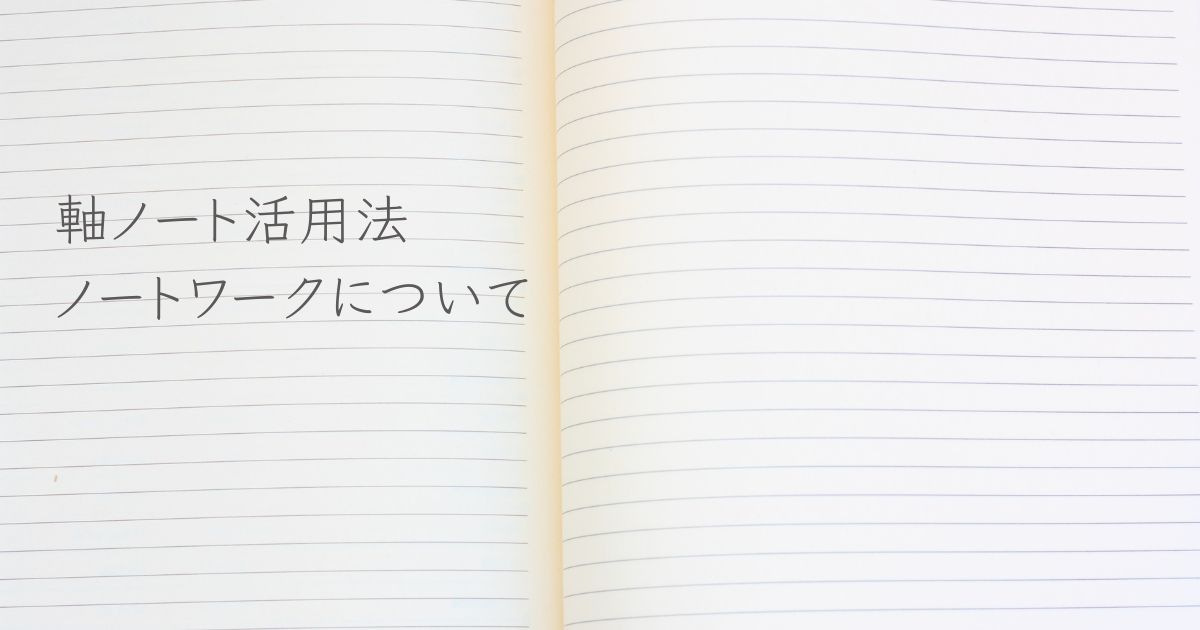 軸ノート活用法
ノートワークについて